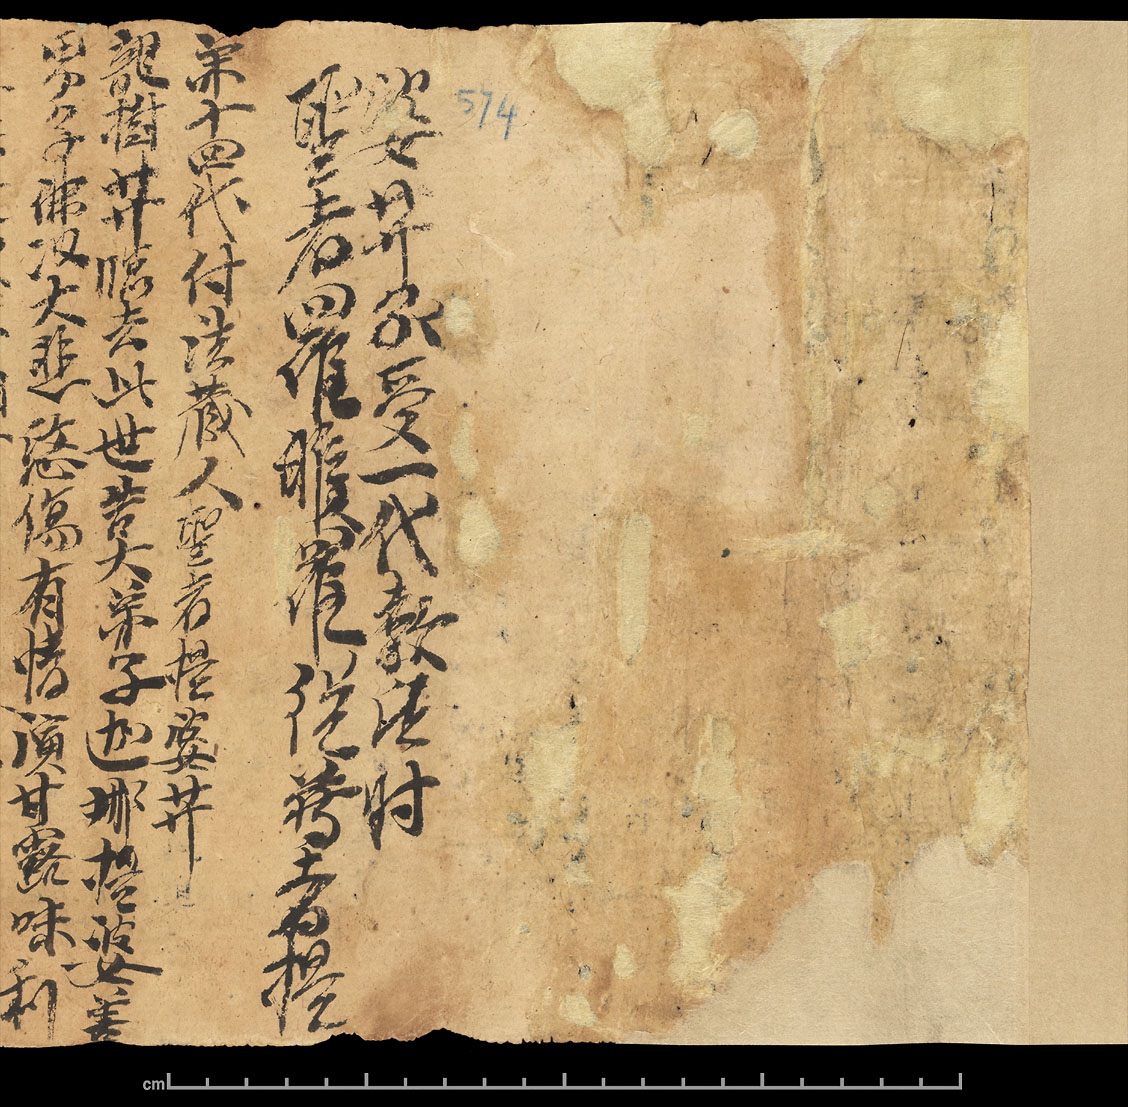 574
聖者羅睺羅從尊者提
婆𦬇処受一代教法时
第十四代付法藏人聖者提婆𦬇
龍樹𦬇臨去此世告大弟子迦那提婆善
男子佛以大悲愍傷有情演甘露味利
cm